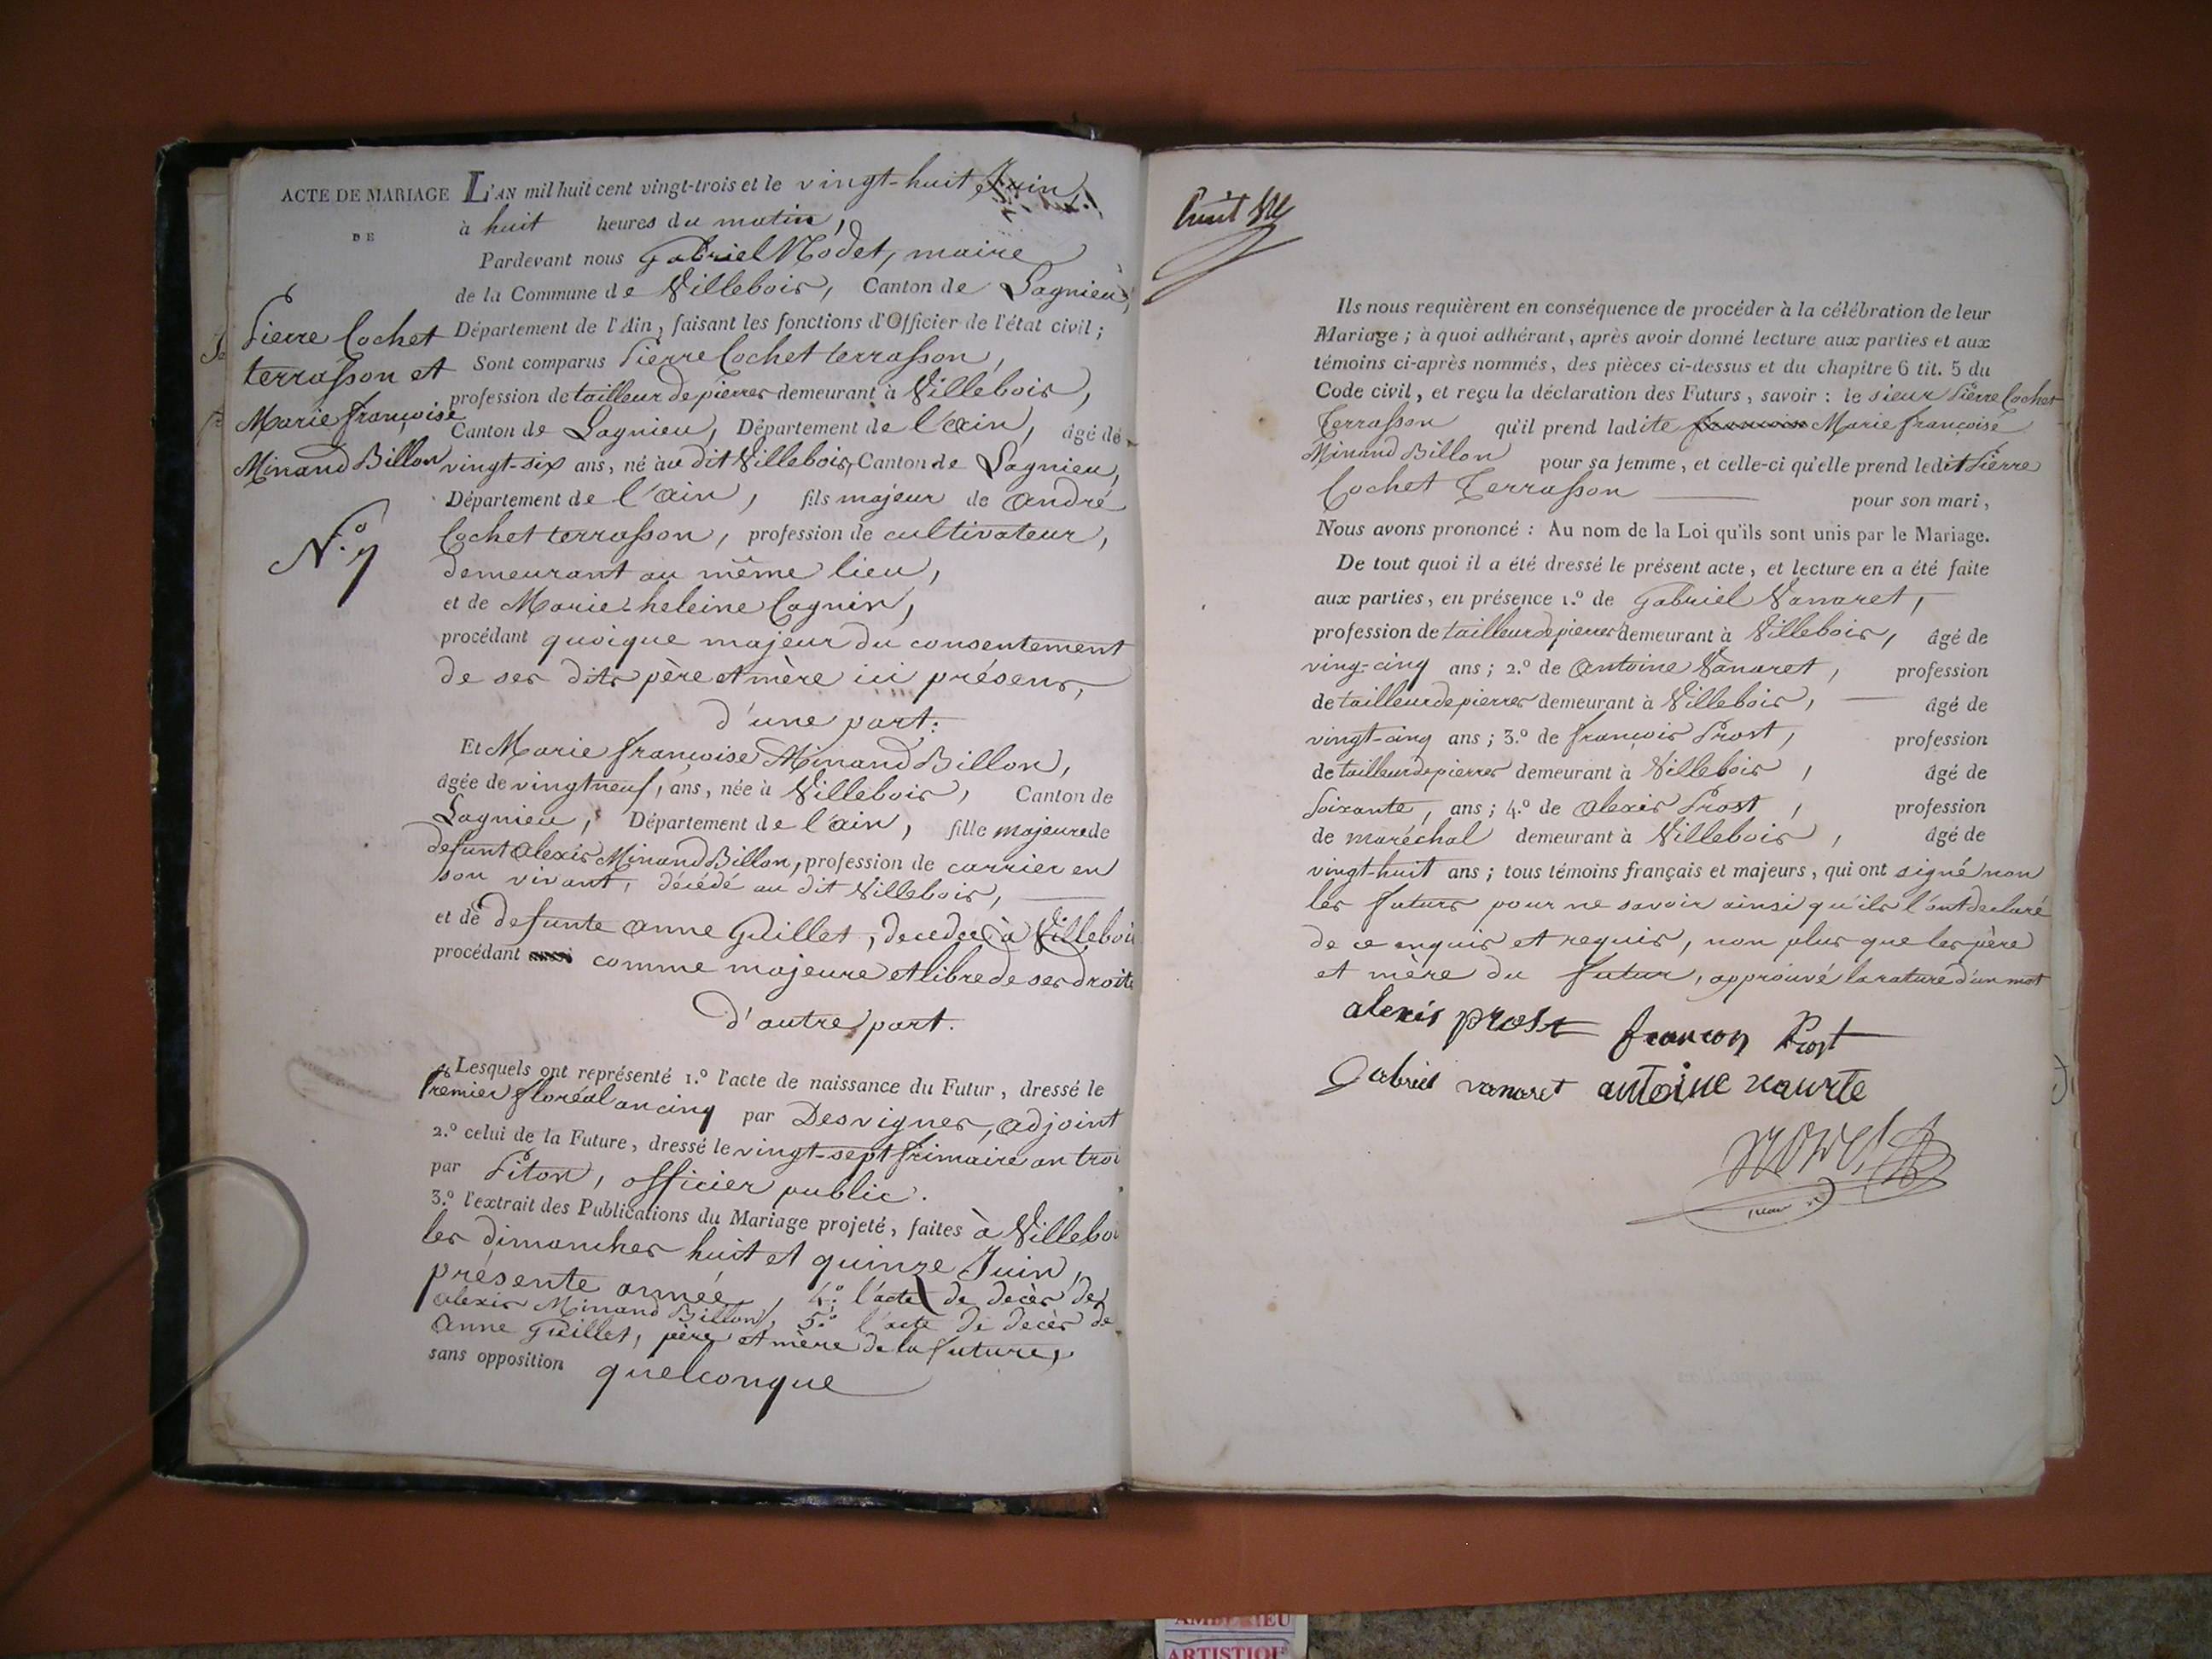 ACTE DE MARIAGE
DE
Pierre Cochet
terrasson et
Marie françoise
Minand Billon
N.º 7
L'AN mil huit cent vingt-trois et le vingt-huit Juin,
à huit heures du matin,
Pardevant nous Gabriel Modet, maire
de la Commune de Villebois, Canton de Lagnieu,
Département de l'Ain, faisant les fonctions d'Officier de l'état civil;
Sont comparus Pierre Cochet terrasson,
profession de tailleur de pierres demeurant à Villebois,
Canton de Lagnieu, Département de l'ain, âgé de
vingt-six ans, né au dit Villebois, Canton de Lagnieu,
Département de l'ain, fils majeur de andré
Cochet terrasson, profession de cultivateur,
demeurant au même lieu,
et de Marie-heleine Cagnin,
procédant quoique majeur du consentement
de ses dits père et mère ici présens,
d'une part:
Et Marie françoise Minand Billon,
âgée de vingt neuf, ans, née à Villebois, Canton de
Lagnieu, Département de l'ain, fille majeure de
defunt alexis Minand Billon, profession de carrier en
son vivant, décédé au dit Villebois,
et de defunte anne Guillet, decedée à Villebois
procédant comme majeure et libre de ses droits
d'autre part.
Lesquels ont représenté 1.º l'acte de naissance du Futur, dressé le
premier floréal an cinq par Desvignes, adjoint
2.º celui de la Future, dressé le vingt-sept frimaire an troi
par Piton, officier public.
3.º l'extrait des Publications du Mariage projeté, faites à Villeboi
les dimanches huit et quinze Juin,
présente année, 4.º l'acte de decès de
alexis Minand Billon, 5.º l'acte de decès de
anne Guillet, père et mère de la future,
sans opposition quelconque
huit
Ils nous requièrent en conséquence de procéder à la célébration de leur
Mariage; à quoi adhérant, après avoir donné lecture aux parties et aux
témoins ci-après nommés, des pièces ci-dessus et du chapitre 6 tit. 5 du
Code civil, et reçu la déclaration des Futurs, savoir: le sieur Pierre Cochet
Terrasson qu'il prend ladite Marie françoise
Minand Billon pour sa femme, et celle-ci qu'elle prend ledit Pierre
Cochet Terrasson pour son mari,
Nous avons prononcé: Au nom de la Loi qu'ils sont unis par le Mariage.
De tout quoi il a été dressé le présent acte, et lecture en a été faite
aux parties, en présence 1.º de Gabriel Vanaret,
profession de tailleur de pierres demeurant à Villebois, âgé de
ving-cinq ans; 2.º de Antoine Vanaret, profession
de tailleur de pierres demeurant à Villebois, âgé de
vingt-cinq ans; 3.º de françois Prost, profession
de tailleur de pierres demeurant à Villebois, âgé de
soixante, ans; 4.º de alexis Prost, profession
de maréchal demeurant à Villebois, âgé de
vingt-huit ans; tous témoins français et majeurs, qui ont signé non
les futurs pour ne savoir ainsi qu'ils l'ont declaré
de ce enquis et requis, non plus que les père
et mère du futur, approuvé la rature d'un mot
alexis prost françois Prost
Gabriel vanaret antoine
AMBERIEU
ARTISTIQUE